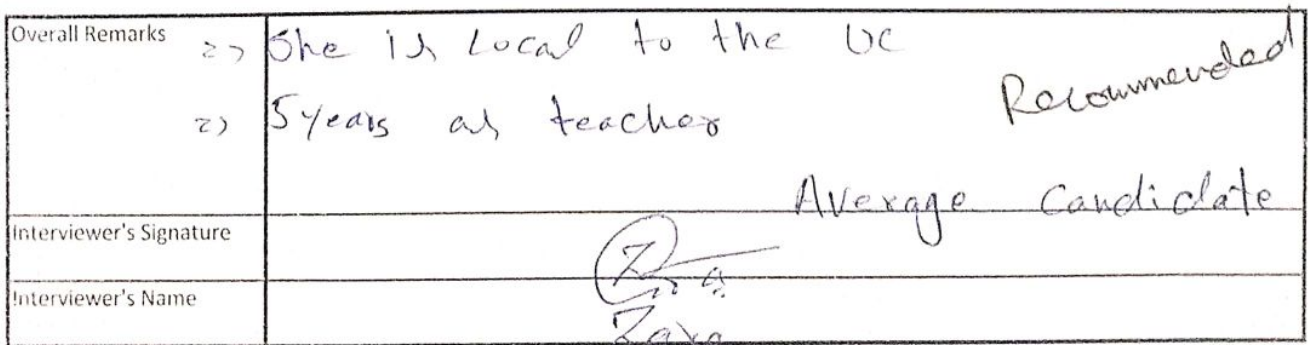 Overall Remarks
=> She is Local to the UC
Recommended
=> 5 years as teacher
Average Candidate
Interviewer's Signature
Interviewer's Name
Zara